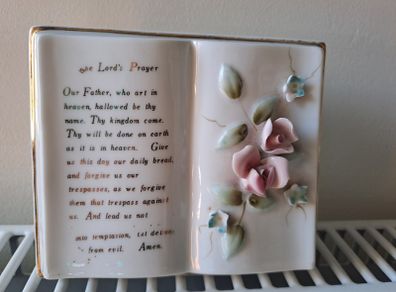 he Lord's Prayer
Our Father, who art in
heaven, hallowed be thy
name. Thy kingdom come.
Thy will be done on earth
as it is in heaven. Give
us this day our daily bread,
and forgive us our
trespasses, as we forgive
them that trespass against
us. And lead us not
into temptation, but deliver
from evil. Amen.